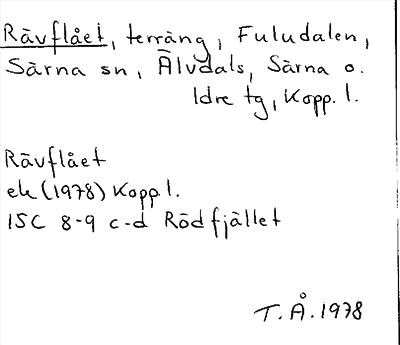 Rävflået, terräng, Fuludalen,
Särna sn, Älvdals, Särna o.
Idre tg, Kopp. l.
Rävflået
ek (1978) Kopp l.
15C 8-9 c-d Rödfjället
T. Å. 1978